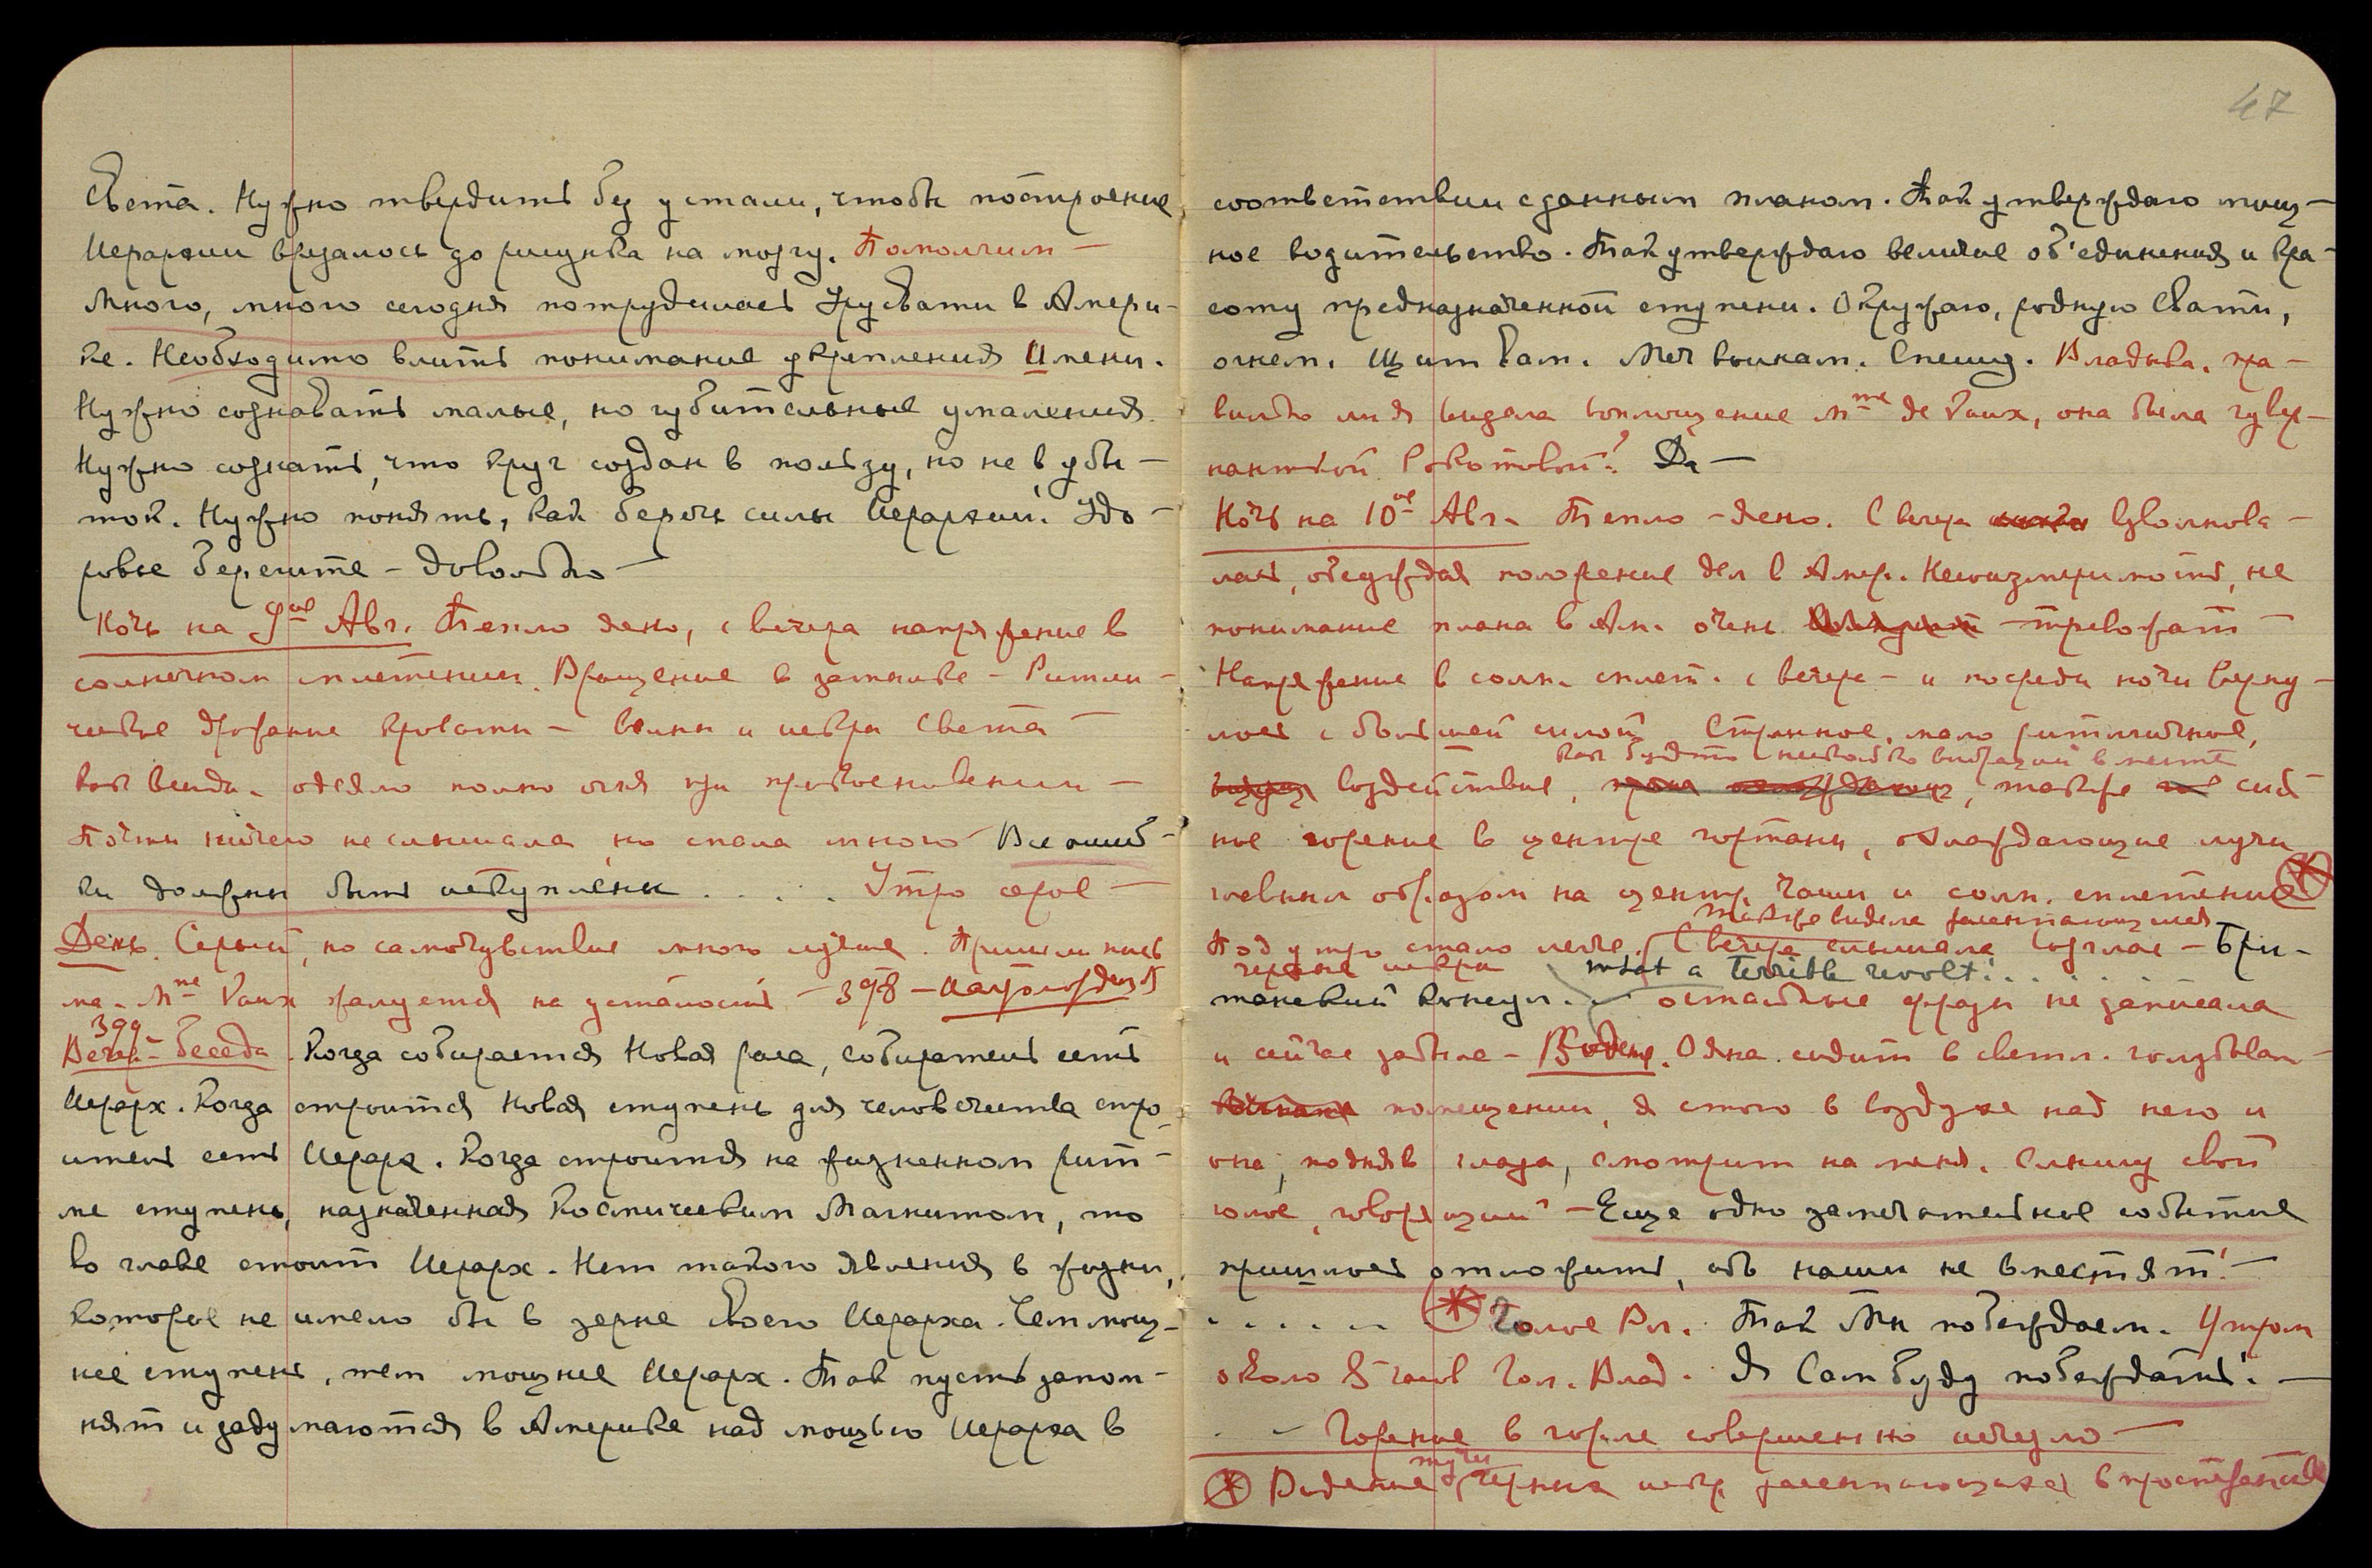 Света. Нужно твердить без устали, чтобы построение
Иерархии врезалось до рисунка на мозгу. Помолчим —
Много, много сегодня потрудилась Урусвати в Амери-
ке. Необходимо влить понимание укрепления Имени.
Нужно сознавать малые, но губительные умаления.
Нужно сознать, что круг создан в пользу, но не в убы-
ток. Нужно понять, как беречь силы Иерархии. Здо-
ровье берегите — довольно —
Ночь на 9ое Авг. Тепло ясно, с вечера напряжение в
солнечном сплетении. Вращение в затылке — Ритми-
ческое дрожание кровати — волны и искры Света —
как всегда. одеяло полно огня при прикосновении —
Почти ничего не слышала, но спала много Все ошиб-
ки должны быть искуплены . . . . . Утро серое —
День. Серый, но самочувствие много лучше. Пришли пись-
ма. Mme Vaux жалуется на усталость — 398 —
399
Вечер. беседа. Когда собирается Новая раса, Собиратель есть
Иерарх. Когда строится новая ступень для человечества стро-
итель есть Иерарх. Когда строится на жизненном рит-
ме ступень, назначенная Космическим Магнитом, то
во главе стоит Иерарх. Нет такого явления в жизни,
которое не имело бы в зерне своего Иерарха. Чем мощ-
нее ступень, тем мощнее Иерарх. Так пусть запом-
нят и задумаются в Америке над мощью Иерарха в
47
соответствии с данным планом. Так утверждаю мощ-
ное водительство. Так утверждаю великое об'единения и кра-
соту предназначенной ступени. Окружаю, родную Свати,
огнем. Щит Вам. Меч воинам. Спешу. Владыка, пра-
вильно ли я видела воплощение Mme de Vaux, она была гувер-
нанткой Рокотовой? Да —
Ночь на 10ое Авг. Тепло — ясно. С вечера взволнова-
лась, обсуждая положение дел в Амер. Несоизмеримость, не
понимание плана в Ам. очень тревожат —
Напряжение в солн. сплет. с вечера — и посреди ночи верну-
лось с большей силой Странное, мало ритмичное,
как будто несколько вибраций вместе
воздействие, также силь-
ное горение в центре гортани, охлаждающие лучи
главным образом на центр Чаши и солн. сплетение
также видела
Под утро стало легче. С вечера слышала возглас — Бри-
черные искры what a terrible revolt! . . . . .
танский консул. — остальные фразы не записала
и сейчас забыла — Видение. Яна сидит в светл. голубоват-
помещении, я стою в воздухе над нею и
она, подняв глаза, смотрит на меня. Слышу свой
голос, говорящий — Еще одно замечательное событие
пришлось отложить, ибо наши не вместят! —
. . . . . . Голос Вл. Так Мы побеждаем. Утром
около 8 часов Гол. Влад. Я Сам буду побеждать! —
. — Горение в горле совершенно исчезло —
тучи
Видение черных искр в пространстве